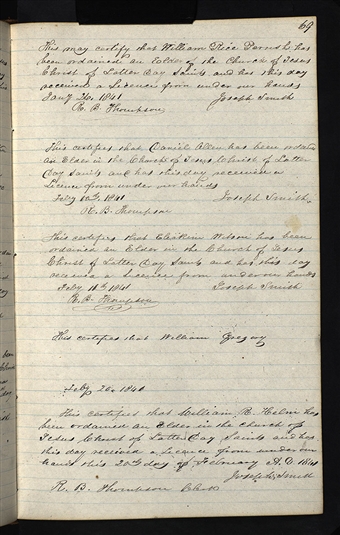 69
This may certify that William Rice has
been ordained an Elder of the Church of Jesus
Christ of Latter Day Saints and has this day
received a Licence from under our hands
Jany 26, 1841 Joseph Smith
R. B. Thompson
This certifies that Daniel Allen has been ordained
an Elder in the Church of Jesus Christ of Latter
Day Saints and has this day received a
Licence from under our hands
Feby 10th 1841 Joseph Smith
R. B. Thompson
This certifies that Wilson has been
ordained an Elder in the Church of Jesus
Christ of Latter Day Saints and has this day
received a Licence from under our hands
Feby 1841 Joseph Smith
R. B. Thompson
This certifies that William Gregory
Feby 20, 1841
This certifies that William R. Helm has
been ordained an Elder in the church of
Jesus Christ of Latter Day Saints and has
this day received a Licence from under our
hands this 20th day of February A.D. 1841
Joseph Smith
R. B. Thompson Clerk